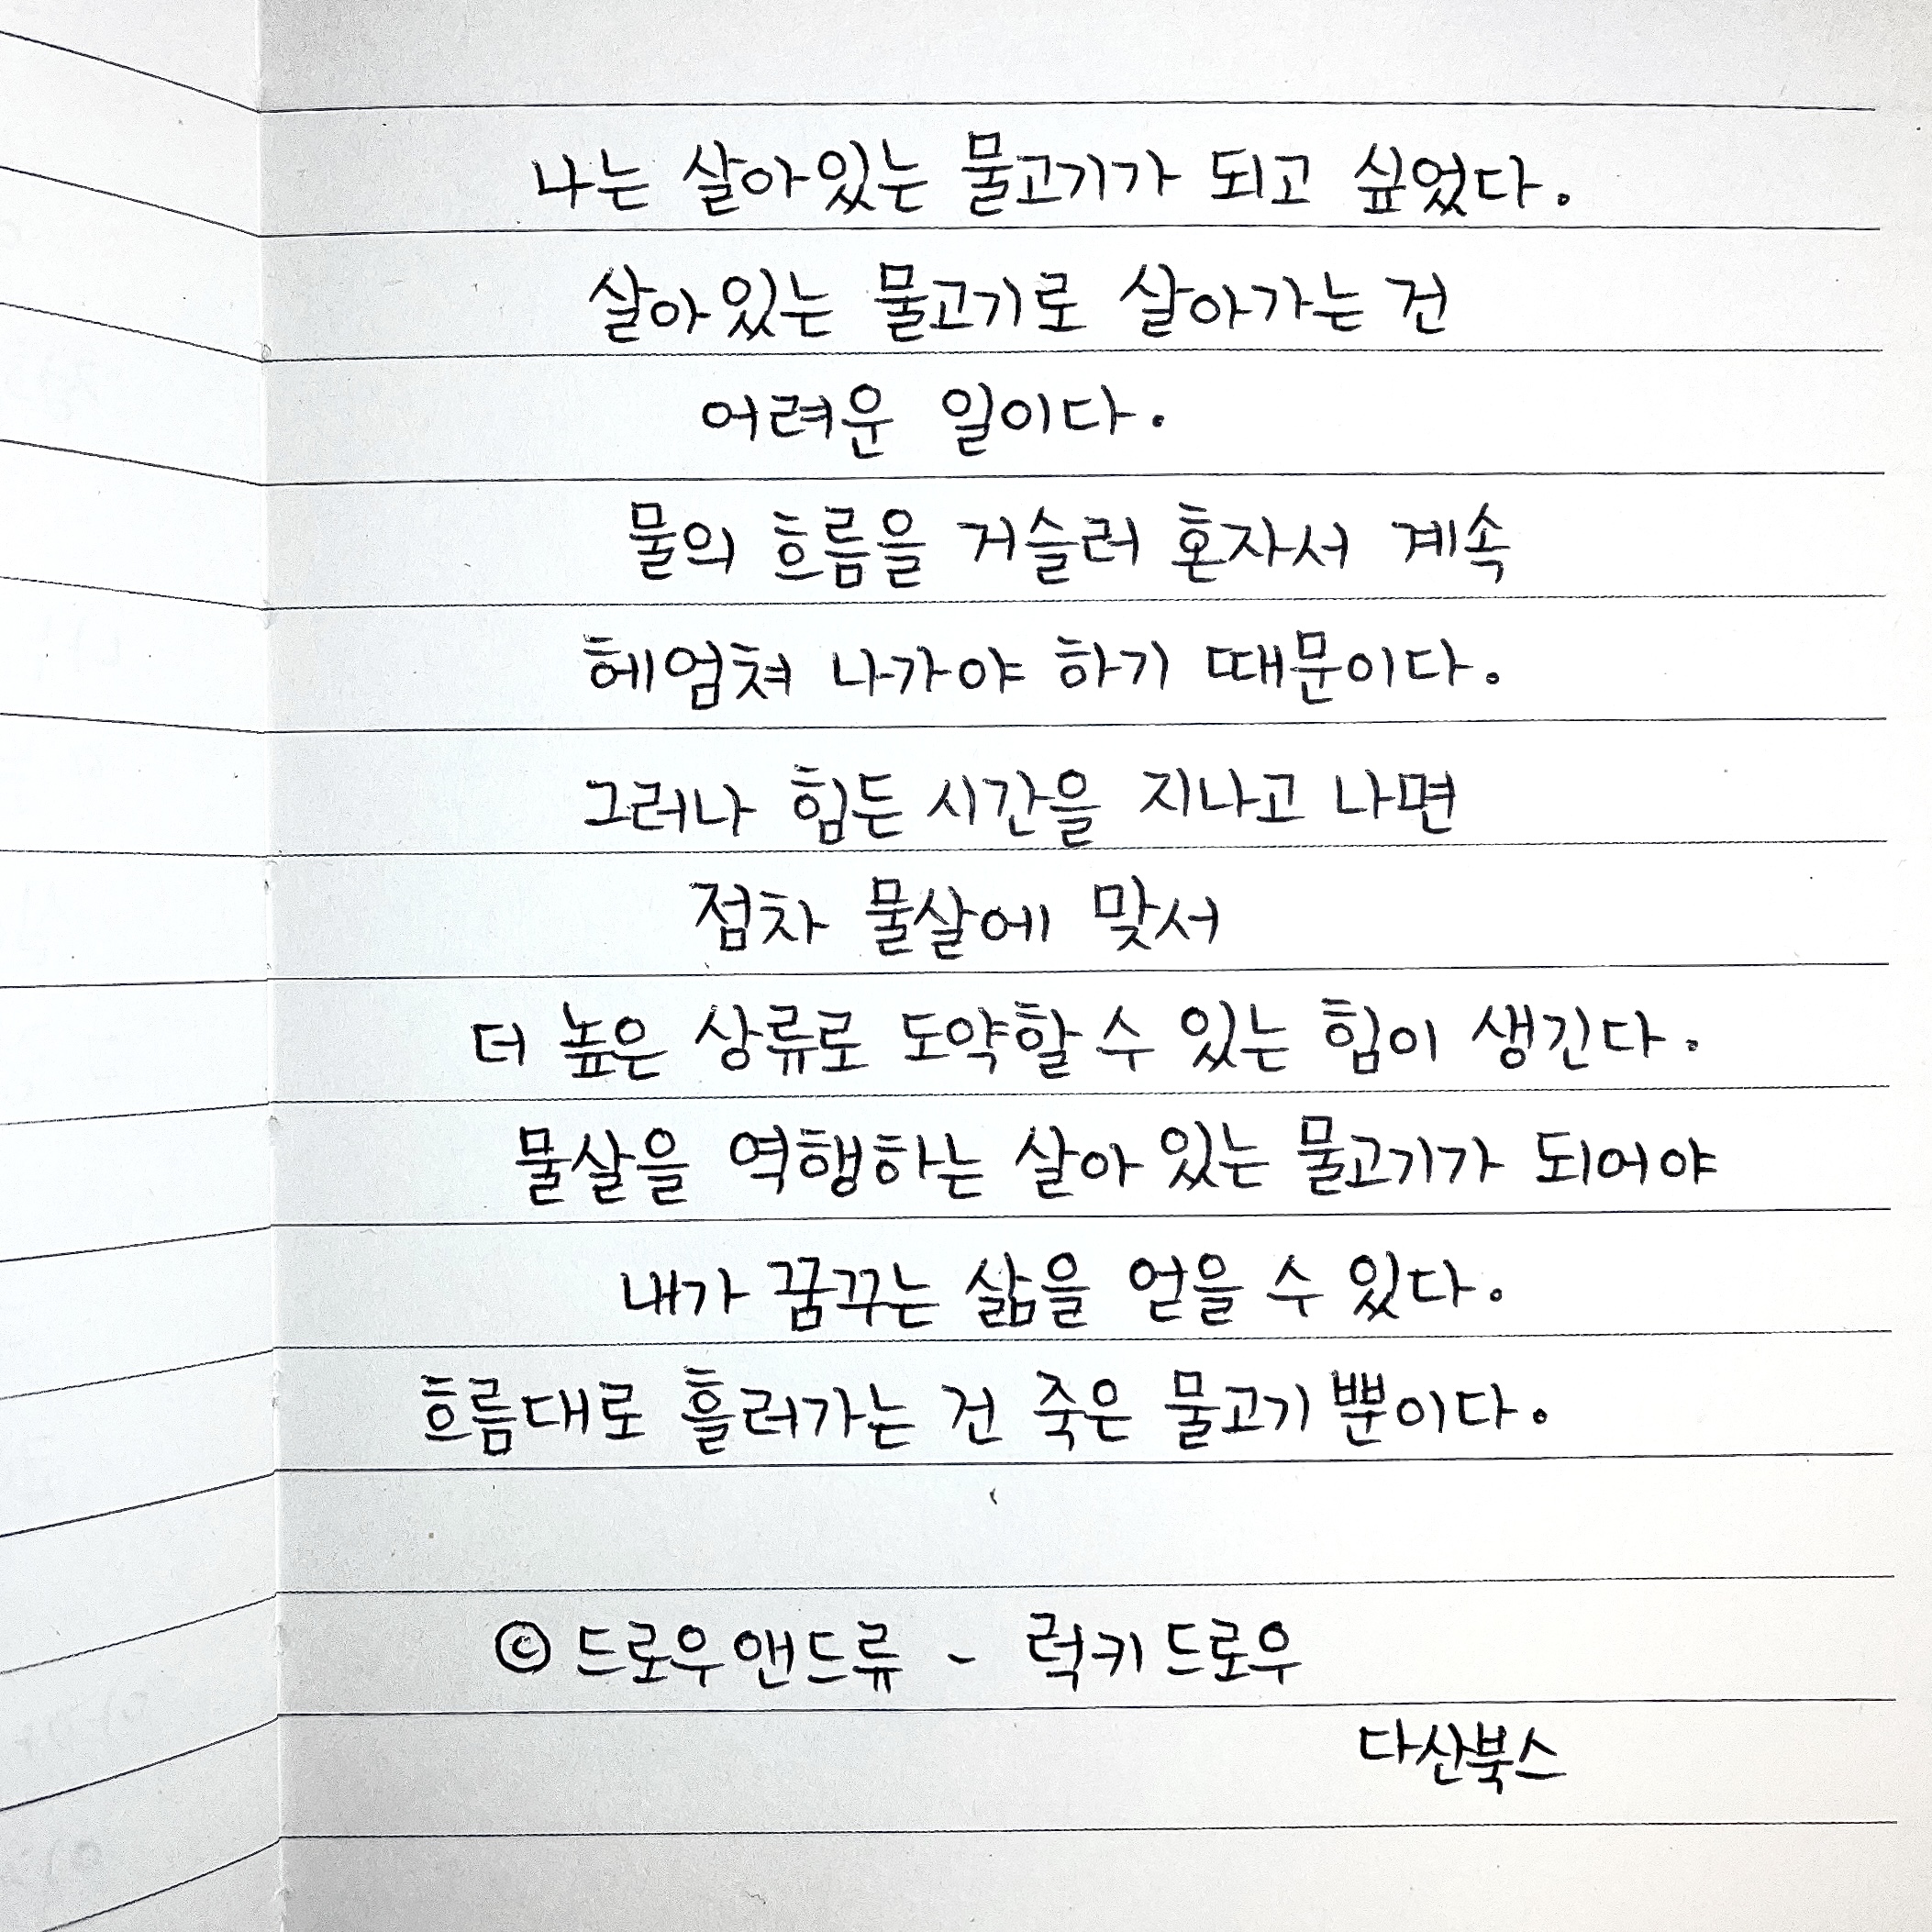 나는 살아있는 물고기가 되고 싶었다.
살아있는 물고기로 살아가는 건
어려운 일이다.
물의 흐름을 거슬러 혼자서 계속
헤엄쳐 나가야 하기 때문이다.
그러나 힘든 시간을 지나고 나면
점차 물살에 맞서
더 높은 상류로 도약할 수 있는 힘이 생긴다.
물살을 역행하는 살아 있는 물고기가 되어야
내가 꿈꾸는 삶을 얻을 수 있다.
흐름대로 흘러가는 건 죽은 물고기 뿐이다.
© 드로우앤드류 - 럭키 드로우
다산북스